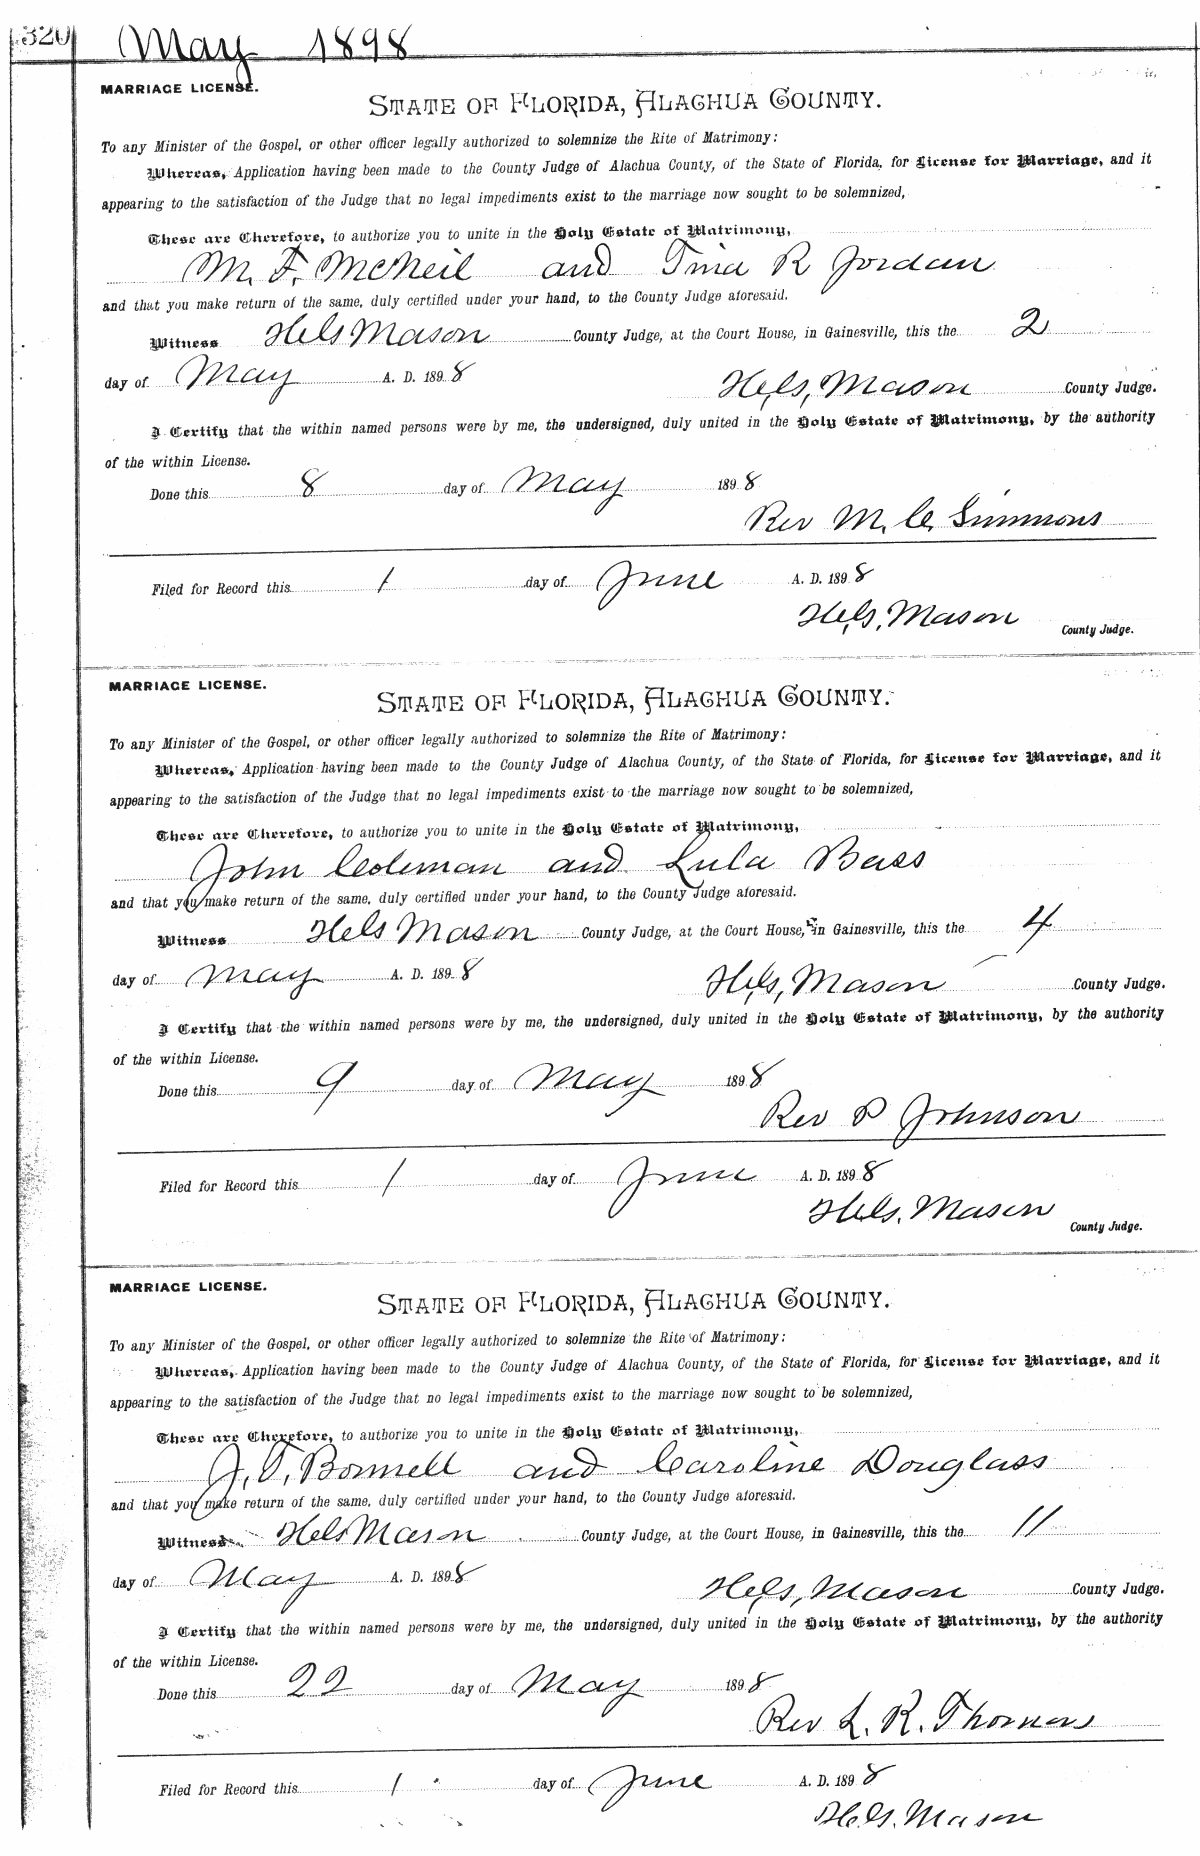 320
May 1898
MARRIAGE LICENSE.
STATE OF FLORIDA, ALACHUA COUNTY.
To any Minister of the Gospel, or other officer legally authorized to solemnize the Rite of Matrimony:
Whereas, Application having been made to the County Judge of Alachua County, of the State of Florida, for License for Marriage, and it
appearing to the satisfaction of the Judge that no legal impediments exist to the marriage now sought to be solemnized,
These are Therefore, to authorize you to unite in the Holy Estate of Matrimony,
M. F. McNeil and Tina R Jordan
and that you make return of the same, duly certified under your hand, to the County Judge aforesaid.
Witness H.G. Mason County Judge, at the Court House, in Gainesville, this the 2
day of May A. D. 1898
H.G. Mason County Judge.
I Certify that the within named persons were by me, the undersigned, duly united in the Holy Estate of Matrimony, by the authority
of the within License.
Done this 8 day of May 1898
Rev M. C. Simmons
Filed for Record this 1 day of June A. D. 1898
H.G. Mason
County Judge.
MARRIAGE LICENSE.
STATE OF FLORIDA, ALACHUA COUNTY.
To any Minister of the Gospel, or other officer legally authorized to solemnize the Rite of Matrimony:
Whereas, Application having been made to the County Judge of Alachua County, of the State of Florida, for License for Marriage, and it
appearing to the satisfaction of the Judge that no legal impediments exist to the marriage now sought to be solemnized,
These are Therefore, to authorize you to unite in the Holy Estate of Matrimony,
John Coleman and Lula Bass
and that you make return of the same, duly certified under your hand, to the County Judge aforesaid.
Witness H.G. Mason County Judge, at the Court House, in Gainesville, this the 4
day of May A. D. 1898
H.G. Mason County Judge.
I Certify that the within named persons were by me, the undersigned, duly united in the Holy Estate of Matrimony, by the authority
of the within License.
Done this 9 day of May 1898
Rev P Johnson
Filed for Record this 1 day of June A. D. 1898
H.G. Mason
County Judge.
MARRIAGE LICENSE.
STATE OF FLORIDA, ALACHUA COUNTY.
To any Minister of the Gospel, or other officer legally authorized to solemnize the Rite of Matrimony:
Whereas, Application having been made to the County Judge of Alachua County, of the State of Florida, for License for Marriage, and it
appearing to the satisfaction of the Judge that no legal impediments exist to the marriage now sought to be solemnized,
These are Therefore, to authorize you to unite in the Holy Estate of Matrimony,
J. T. Bonnell and Caroline Douglass
and that you make return of the same, duly certified under your hand, to the County Judge aforesaid.
Witness H.G. Mason County Judge, at the Court House, in Gainesville, this the 11
day of May A. D. 1898
H.G. Mason County Judge.
I Certify that the within named persons were by me, the undersigned, duly united in the Holy Estate of Matrimony, by the authority
of the within License.
Done this 22 day of May 1898
Rev L. R. Thomas
Filed for Record this 1 day of June A. D. 1898
H.G. Mason